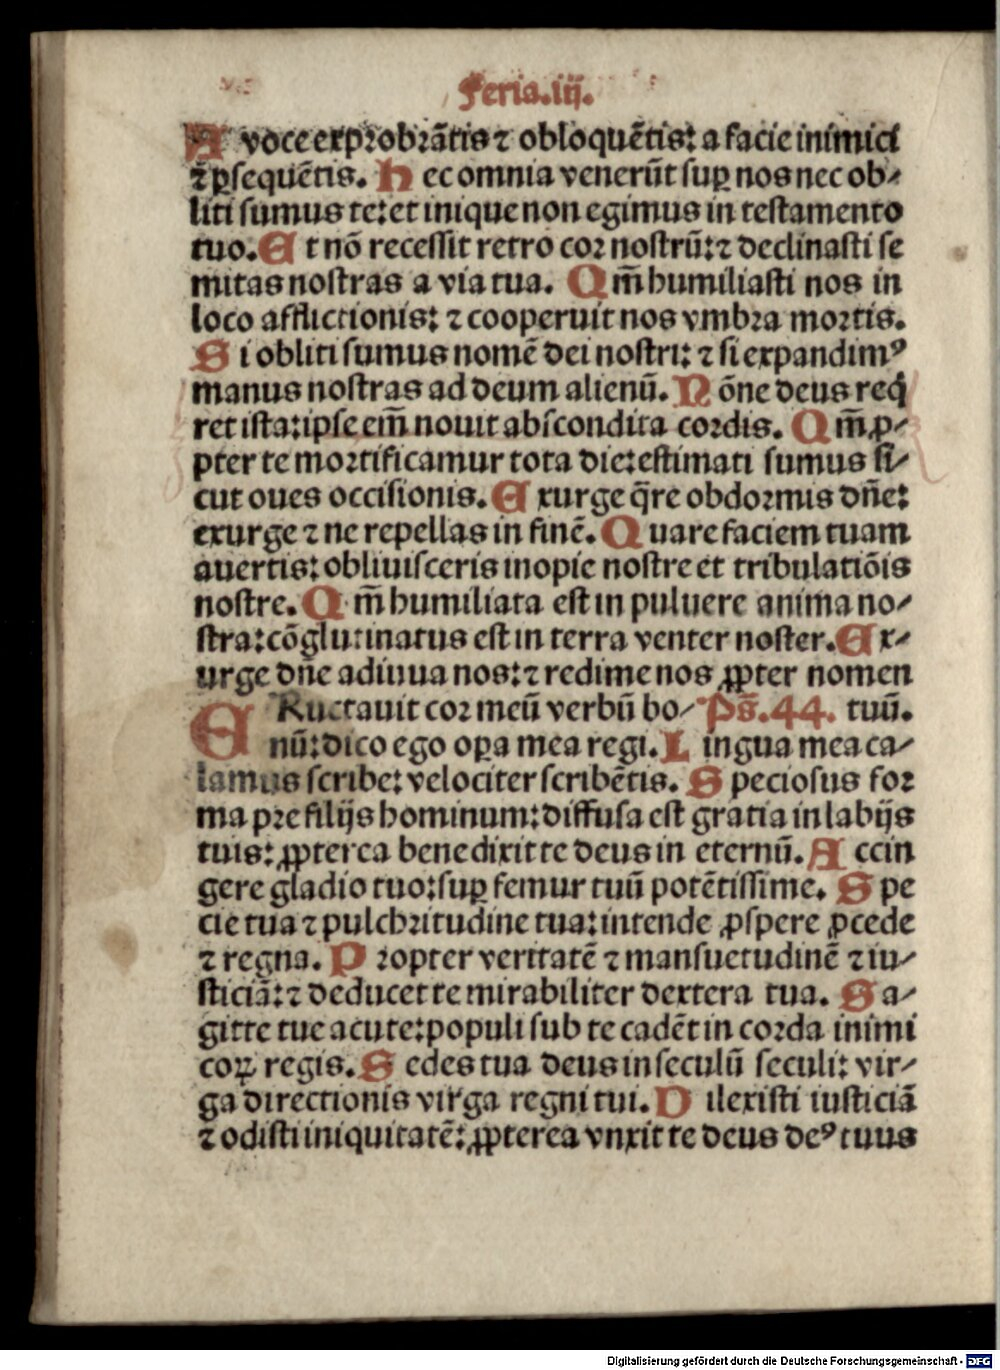 Feria.iij.
A voce exprobrãtis ⁊ obloquẽtis: a facie inimici
⁊ ꝑsequẽtis. H ec omnia venerũt suꝑ nos nec ob⸗
liti sumus te: et inique non egimus in testamento
tuo. E t nõ recessit retro cor nostrũ: ⁊ declinasti se
mitas nostras a via tua. Q m̃ humiliasti nos in
loco afflictionis: ⁊ cooperuit nos vmbra mortis.
S i obliti sumus nomẽ dei nostri: ⁊ si expandimꝰ
manus nostras ad deum alienũ. N õne deus reꝗ̃
ret ista: ipse em̃ nouit abscondita cordis. Q m̃ ꝓ⸗
pter te mortificamur tota die: estimati sumus si⸗
cut oues occisionis. E xurge q̃re obdormis dñe:
exurge ⁊ ne repellas in finẽ. Q uare faciem tuam
auertis: obliuisceris inopie nostre et tribulatiõis
nostre. Q m̃ humiliata est in puluere anima no⸗
stra: cõglutinatus est in terra venter noster. E x⸗
urge dñe adiuua nos: ⁊ redime nos ꝓpter nomen
E Ructauit cor meũ verbũ bo⸗ Ps̃.44. tuũ.
nũ: dico ego oꝑa mea regi. L ingua mea ca⸗
lamus scribe: velociter scribẽtis. S peciosus for
ma pre filijs hominum: diffusa est gratia in labijs
tuis: ꝓpterea benedixit te deus in eternũ. A ccin
gere gladio tuo: suꝑ femur tuũ potẽtissime. S pe
cie tua ⁊ pulchritudine tua: intende ꝓspere ꝓcede
⁊ regna. P ropter veritatẽ ⁊ mansuetudinẽ ⁊ iu⸗
sticiã: ⁊ deducet te mirabiliter dextera tua. S a⸗
gitte tue acute: populi sub te cadẽt in corda inimi
coꝝ regis. S edes tua deus in seculũ seculi: vir⸗
ga directionis virga regni tui. D ilexisti iusticiã
⁊ odisti iniquitatẽ: ꝓpterea vnxit te deus deꝰ tuus
Digitalisierung gefördert durch die Deutsche Forschungsgemeinschaft - DFG